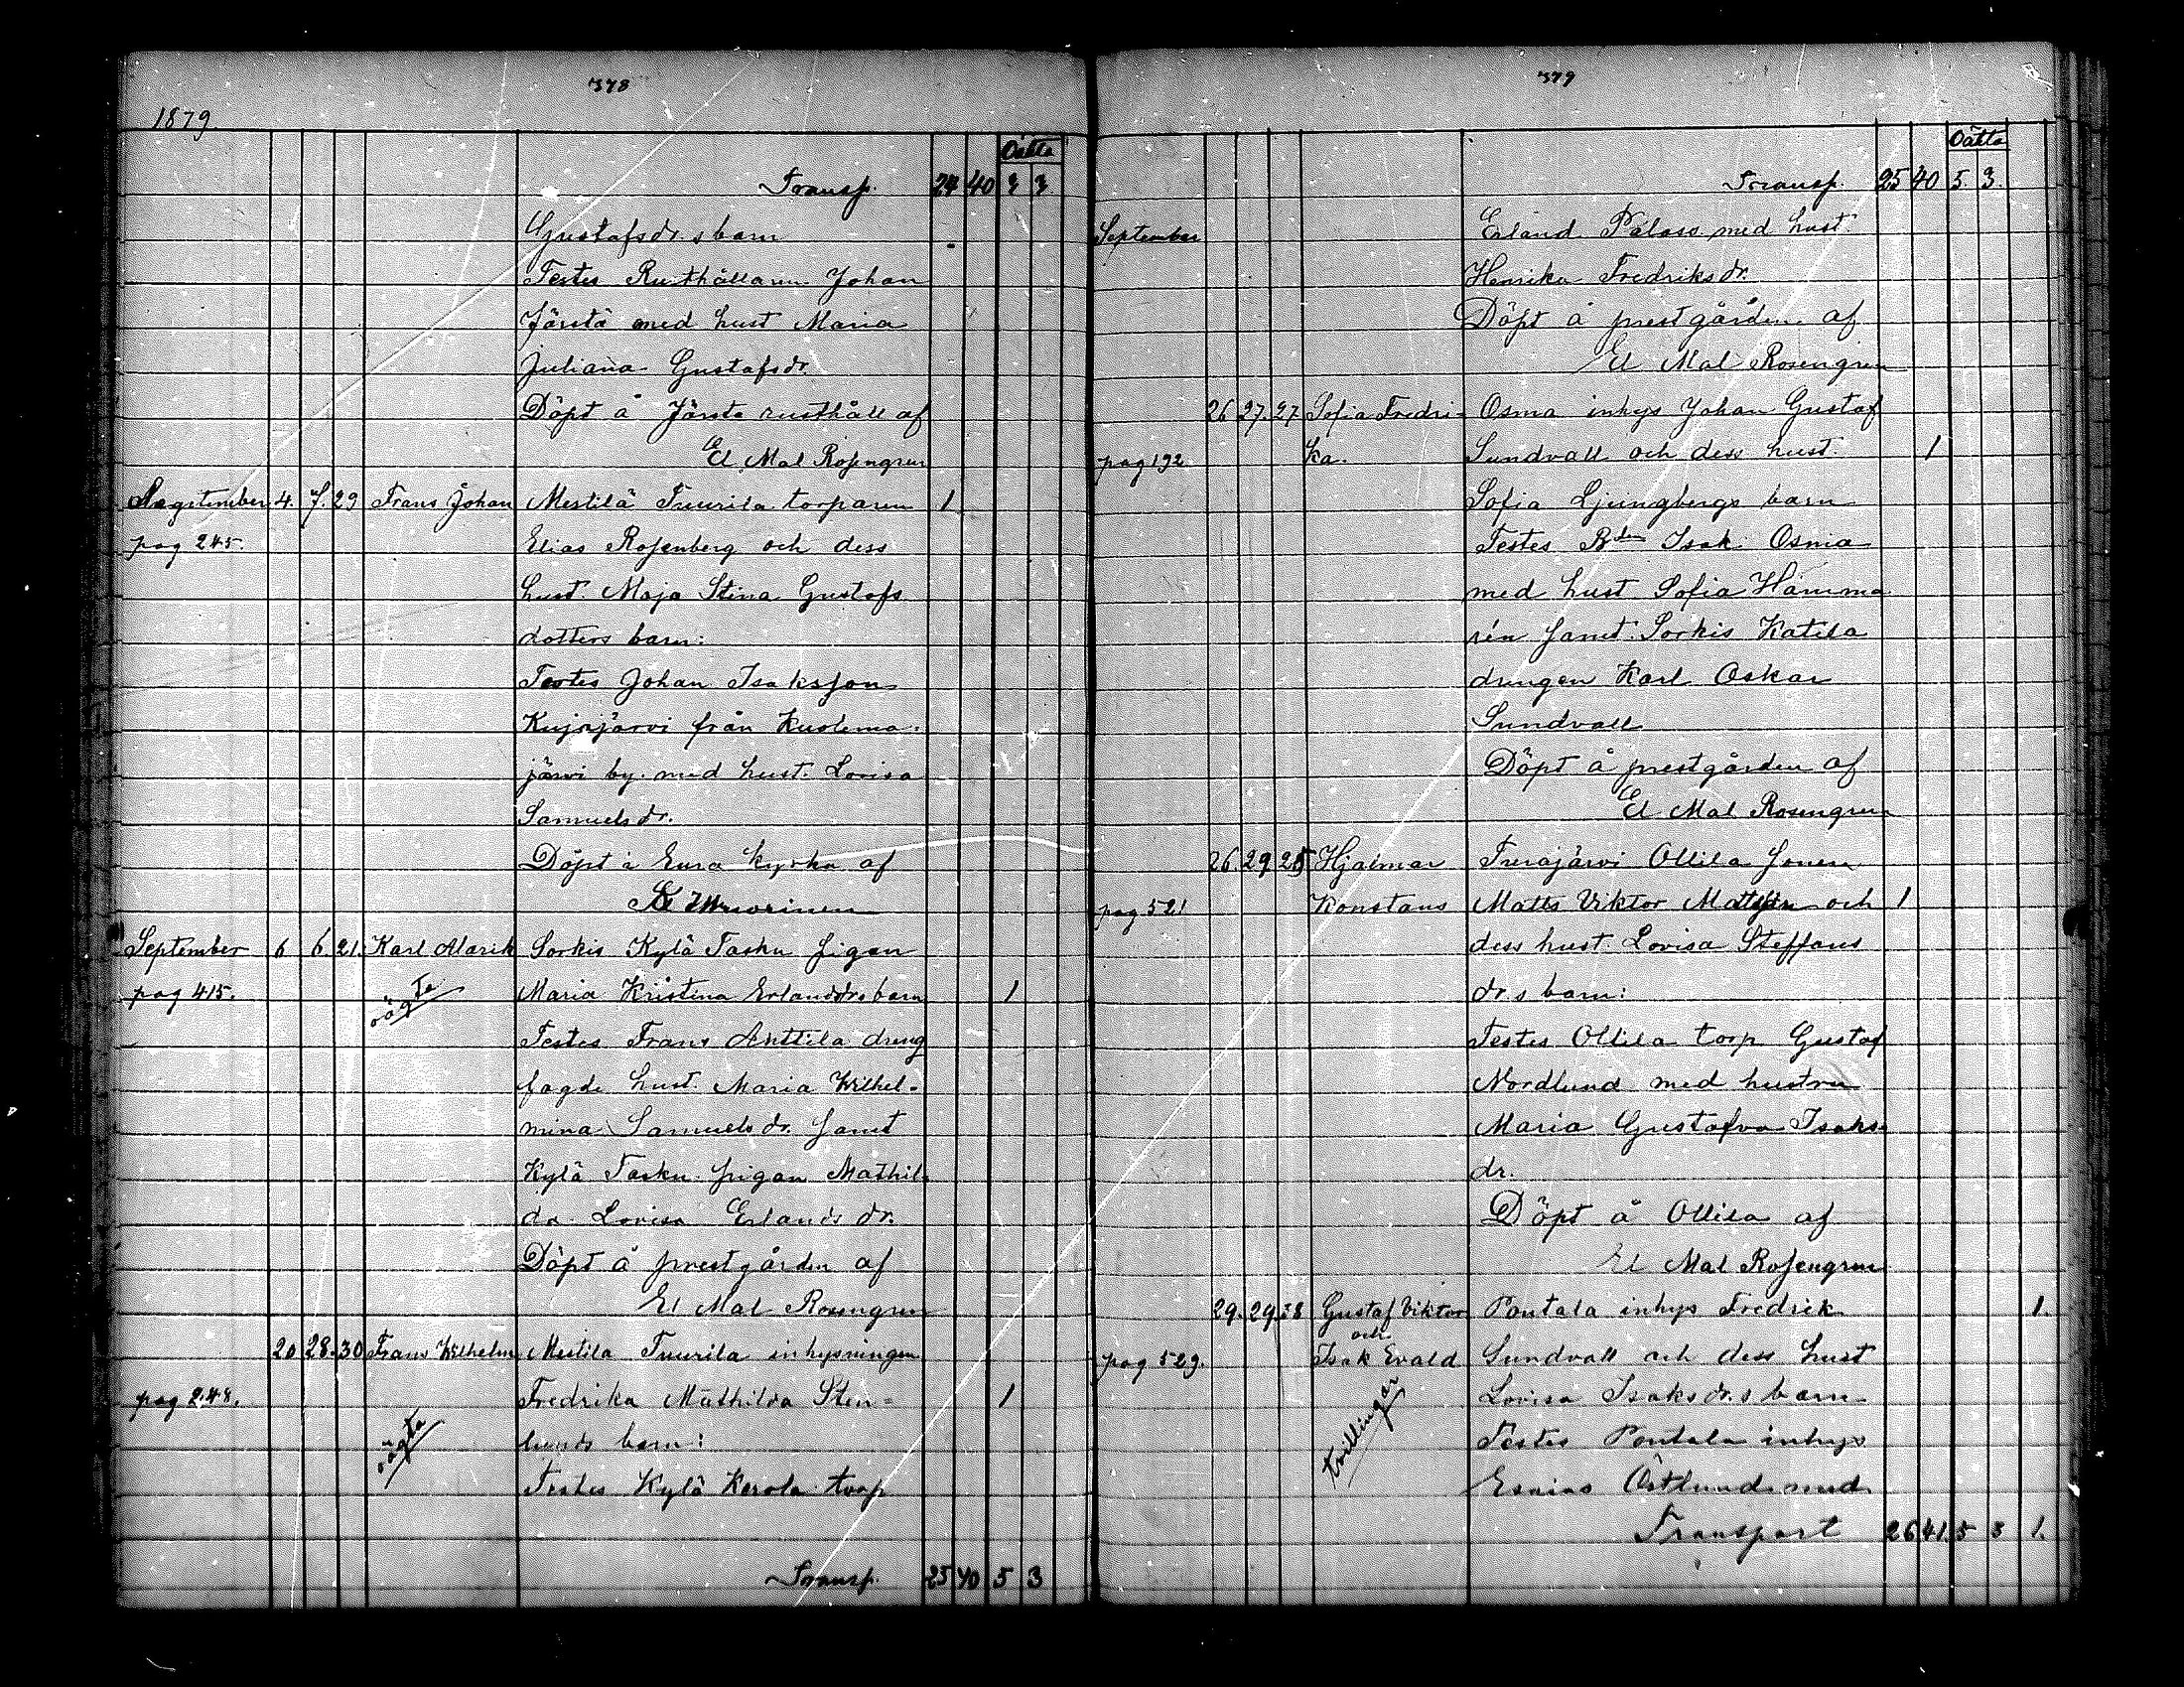 378
1879.
Oäkta
Transp. 24 40 3 3
Gustafsdr. s barn
Testes Rusthållaren Johan
Järstä med hust Maria
Juliana Gustafsdr.
Döpt å Järsta rusthåll af
El Mal Rosengren
September 4. 7. 29 Frans Johan Mestilä Tuurila torparen 1
pag 245. Elias Rosenberg och dess
hust. Maja Stina Gustafs
dotters barn:
Testes Johan Isaksson
Kujajärvi från Kuolema-
järvi by med hust. Lovisa
Samuelsdr.
Döpt i Eura kyrka af
September 6 6. 21. Karl Alarik Sorkis Kylä Tasku pigan
pag 415. oägta Maria Kristina Erlandsdrs barn 1
Testes Frans Anttila dreng
fogde hust. Maria Wilhel-
mina Samuelsdr. samt
Kylä Tasku pigan Mathil-
da Lovisa Erlandsdr.
Döpt å prestgården af
El Mal Rosengren
20 28. 30 Frans Wilhelm Mestilä Tuurila inhysningen
pag 248. Fredrika Mathilda Sten- 1
oägta lunds barn:
Testes Kylä Kerola torp
Transp. 25 40 5 3
379
Oäkta
Transp. 25 40 5. 3.
September Erland Palass med hust.
Henrika Fredriksdr.
Döpt å prestgården af
El Mal Rosengren
26 27. 27 Sofia Fredri- Osma inhys Johan Gustaf
pag 192 ka. Sundvall och dess hust. 1
Sofia Ljungbergs barn
Testes Bdn Isak Osma
med hust Sofia Hamma
rén samt Sorkis Katila
drengen Karl Oskar
Sundvall
Döpt å prestgården af
El Mal Rosengren
26 29 25 Hjalmar Turajärvi Ollila sonen
pag 521 Konstans Matts Viktor Mattsson och 1
dess hust. Lovisa Steffans
dr s barn:
Testes Ollila torp Gustaf
Nordlund med hustru
Maria Gustafva Isaks-
dr.
Döpt å Ollila af
El Mal Rosengren
29. 29. 38 Gustaf Viktor Pontala inhys Fredrik 1.
och
pag 529. Isak Evald Sundvall och dess hust
tvillingar Lovisa Isaksdr. s barn
Testes Pontala inhys
Esaias Östlund med
Transport 26 41. 5 3 1.